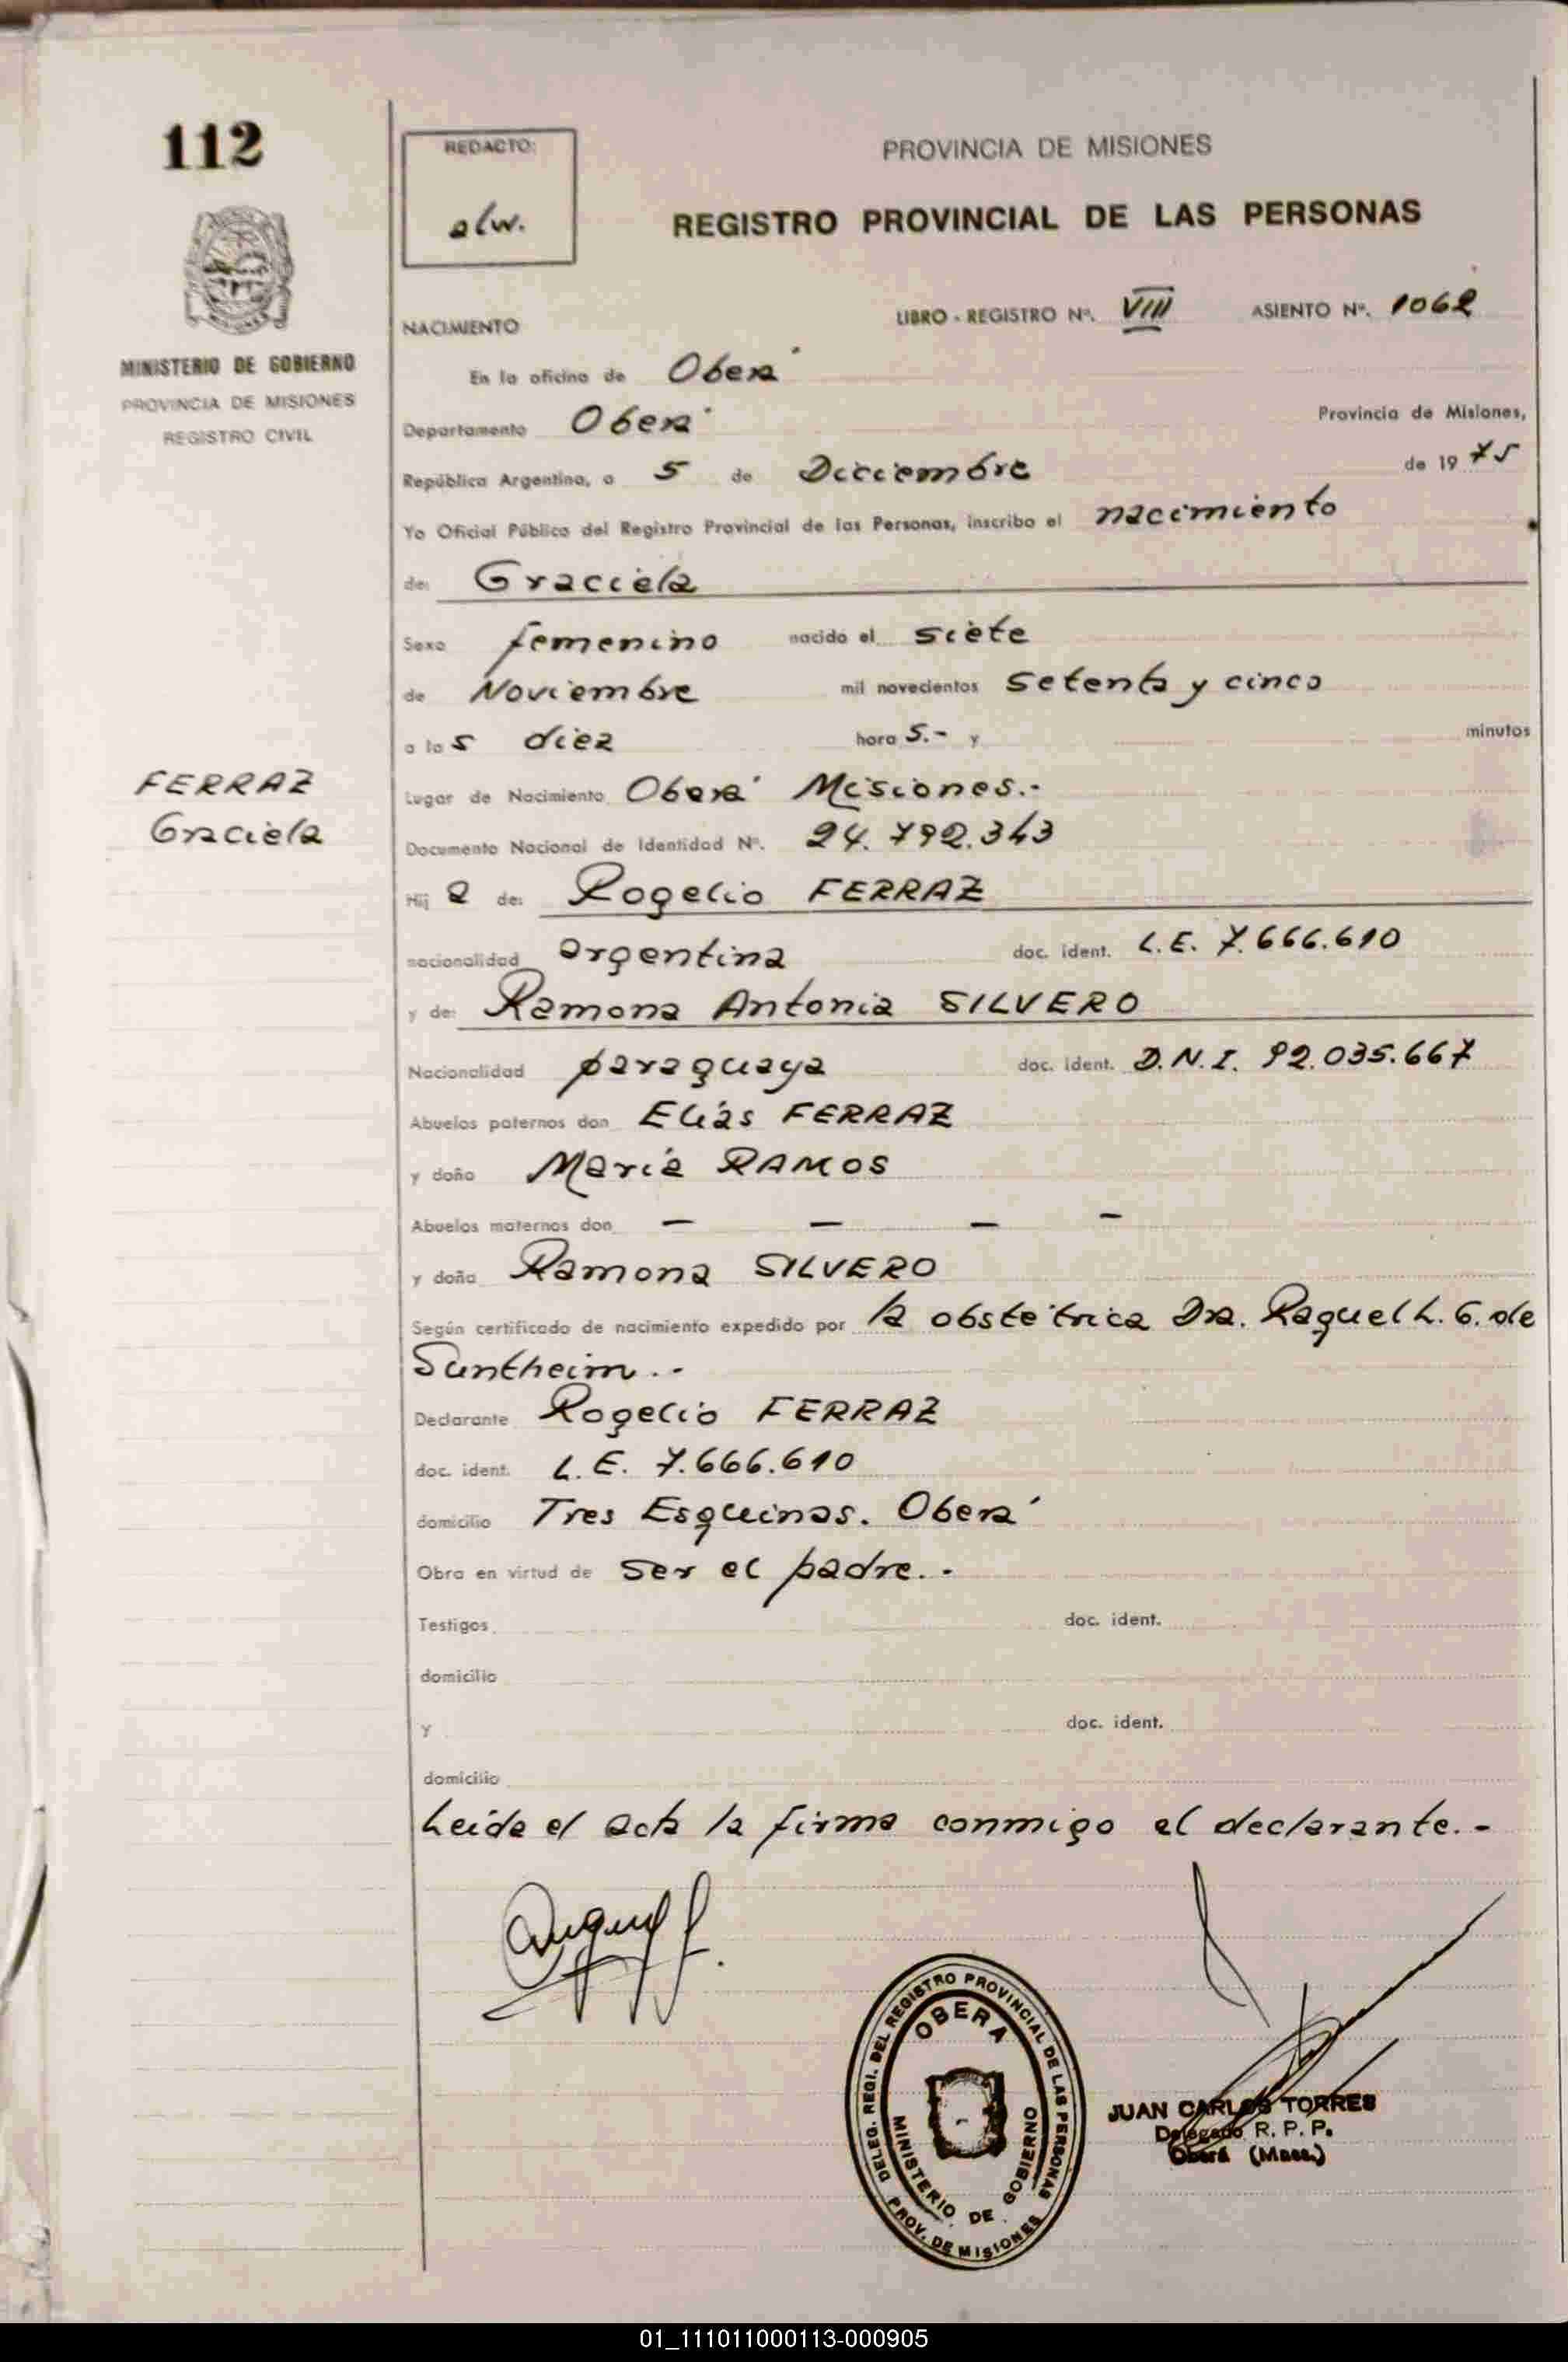 112
REDACTO:
alw.
PROVINCIA DE MISIONES
REGISTRO PROVINCIAL DE LAS PERSONAS
MINISTERIO DE GOBIERNO
PROVINCIA DE MISIONES
REGISTRO CIVIL
NACIMIENTO
LIBRO - REGISTRO Nº. VIII ASIENTO Nº. 1062
En la oficina de Oberá
Departamento Oberá Provincia de Misiones,
República Argentina, a 5 de Diciembre de 1975
Yo Oficial Público del Registro Provincial de las Personas, inscribo el nacimiento
de: Graciela
Sexo femenino nacido el siete
de Noviembre mil novecientos setenta y cinco
a las diez hora s.- y minutos
FERRAZ
Graciela
Lugar de Nacimiento Oberá Misiones.-
Documento Nacional de Identidad Nº. 24.792.343
Hij a de: Rogelio FERRAZ
nacionalidad argentina doc. ident. L.E. 7.666.610
y de: Ramona Antonia SILVERO
Nacionalidad paraguaya doc. ident. D.N.I. 92.035.667
Abuelos paternos don Elías FERRAZ
y doña María RAMOS
Abuelos maternos don — — — —
y doña Ramona SILVERO
Según certificado de nacimiento expedido por la obstétrica Dra. Raquel L. G. de
Suntheim.-
Declarante Rogelio FERRAZ
doc. ident. L.E. 7.666.610
domicilio Tres Esquinas. Oberá
Obra en virtud de ser el padre.-
Testigos doc. ident.
domicilio
y doc. ident.
domicilio
Leída el acta la firma conmigo el declarante.-
DELEG. REGI. DEL REGISTRO PROVINCIAL DE LAS PERSONAS
OBERA
MINISTERIO DE GOBIERNO
PROV. DE MISIONES
JUAN CARLOS TORRES
Delegado R. P. P.
Oberá (Mnes.)
01_111011000113-000905